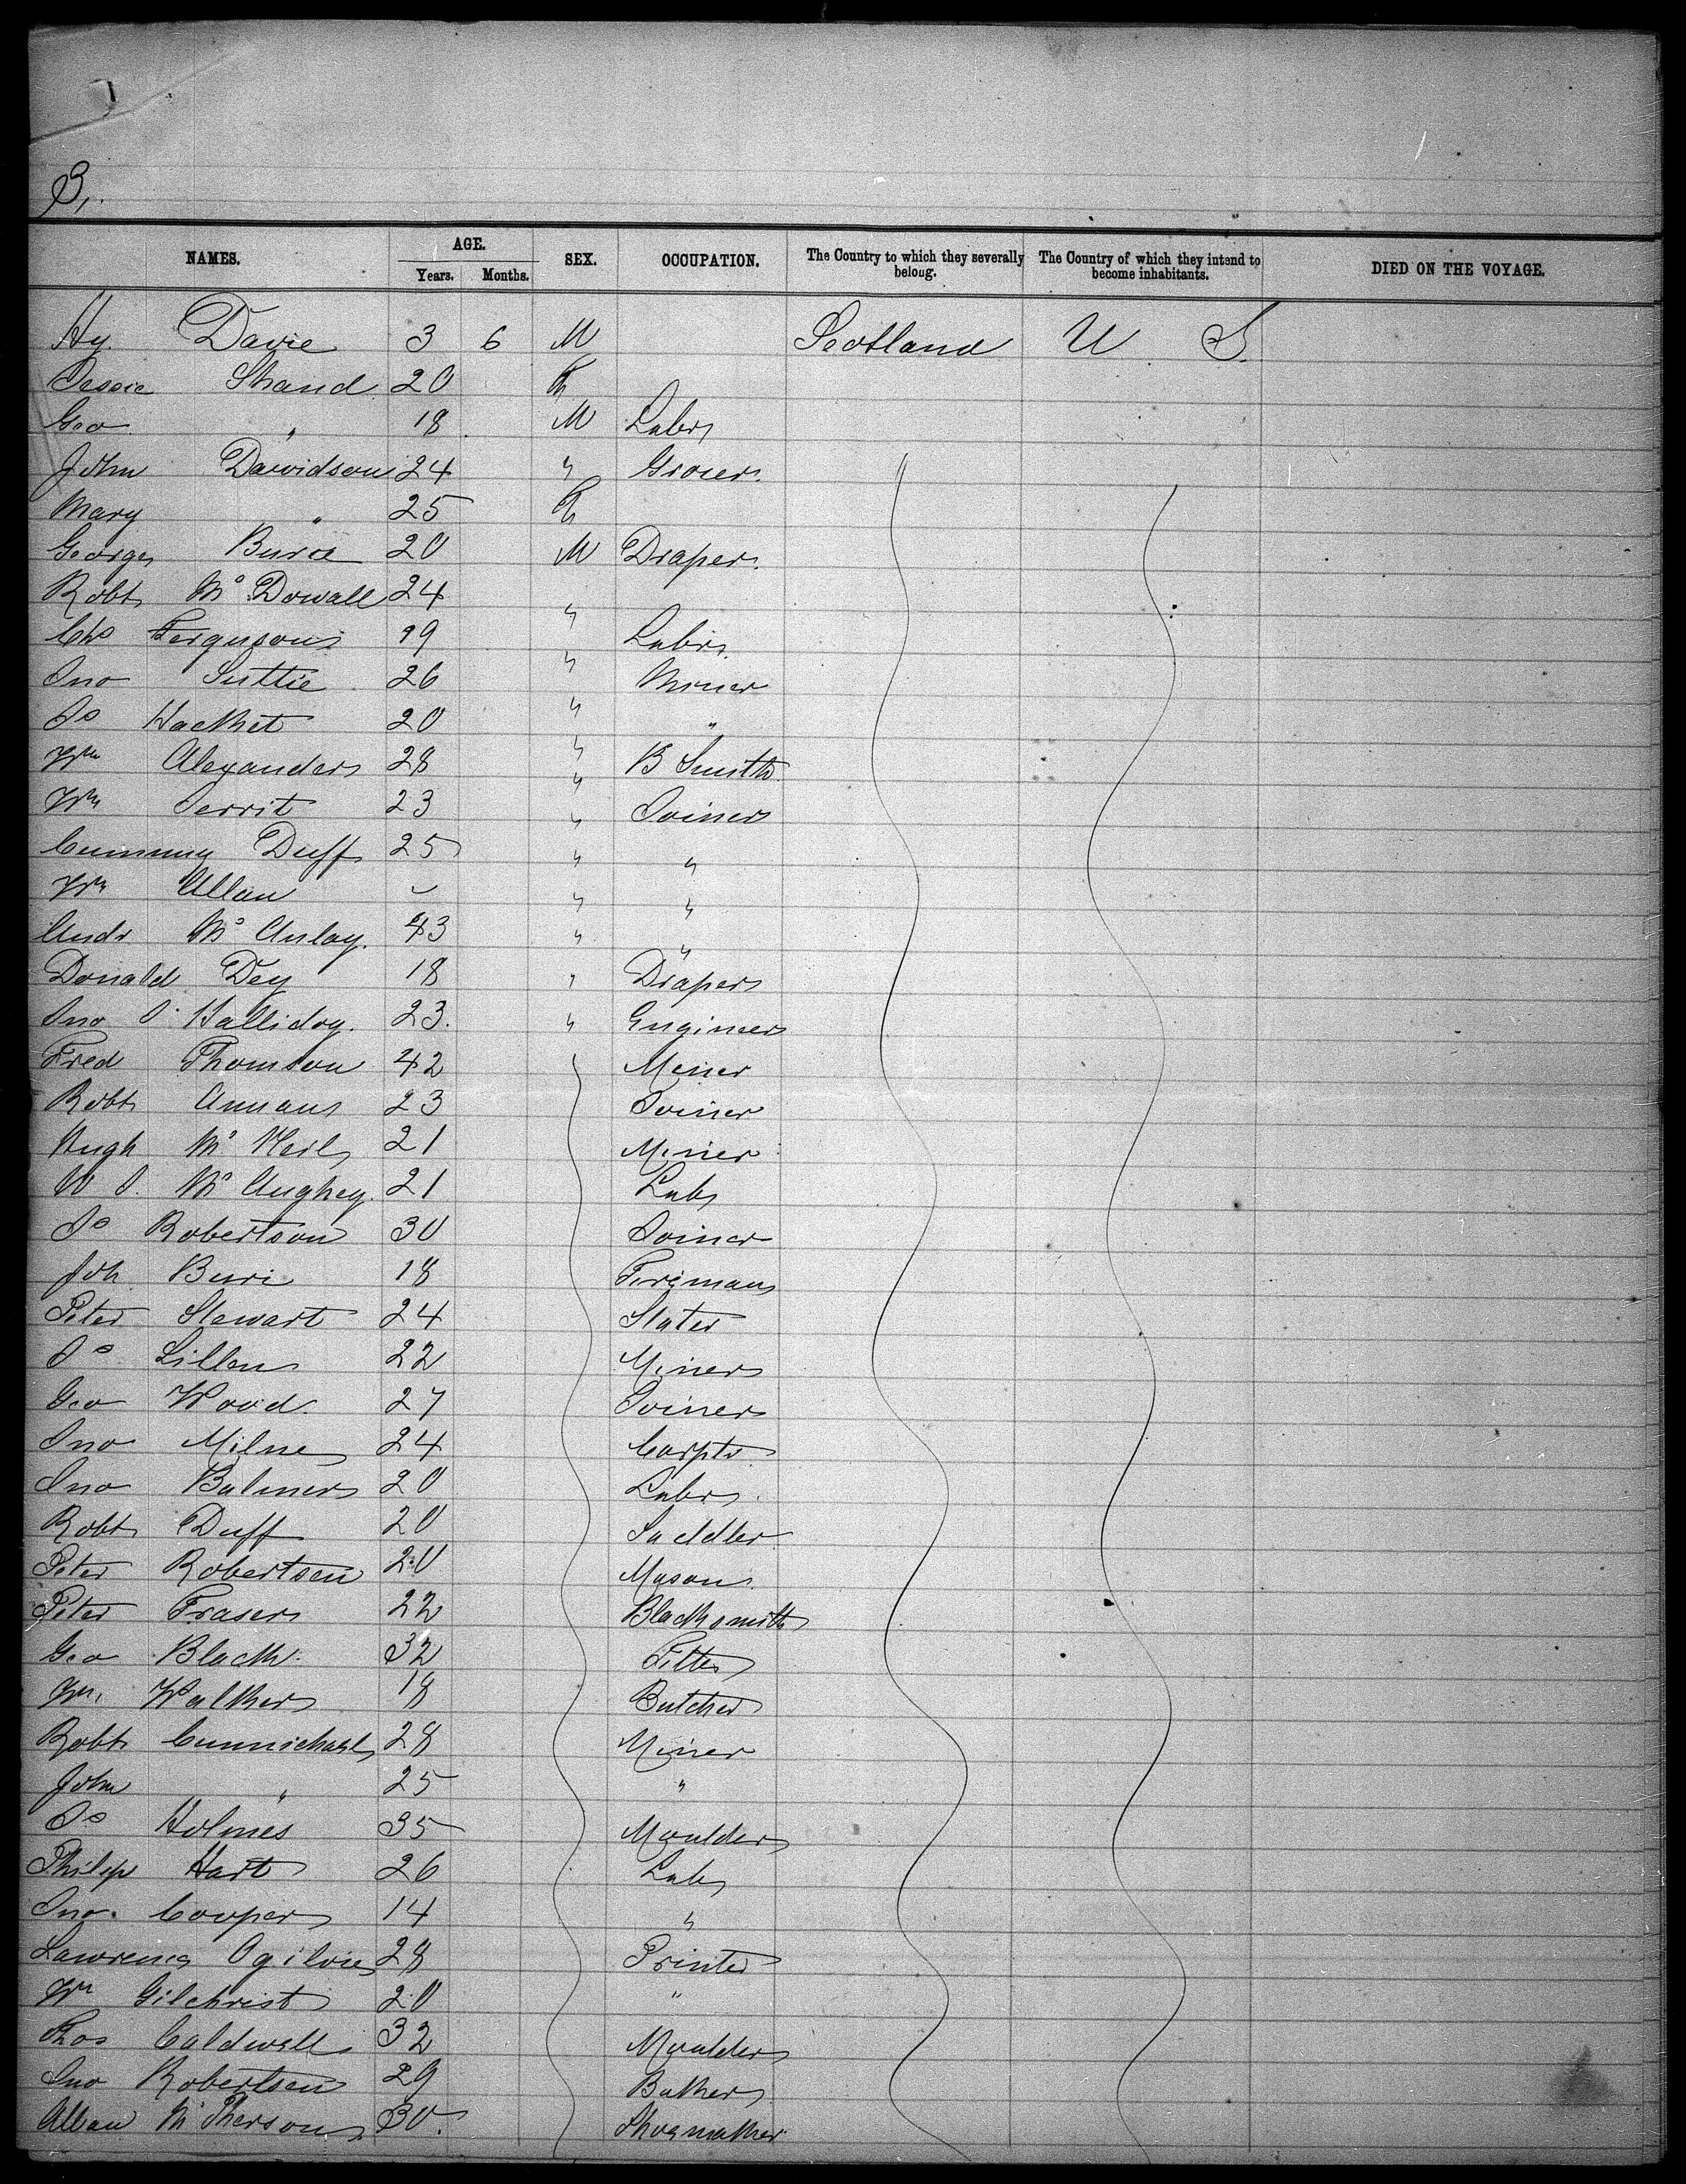 3,.
NAMES. AGE. Years. Months. SEX. OCCUPATION. The Country to which they severally belong. The Country of which they intend to become inhabitants. DIED ON THE VOYAGE.
Hy. Davie 3 6 M Scotland U S
Jessie Shand 20 F
Geo " 18 M Labr
John Davidson 24 " Grocer.
Mary " 25 F
George 20 M Draper.
Robt Mc Dowall 24 "
Chs Ferguson 19 " Labr.
Jno Suttie 26 " Miner
Js Hacket 20 " "
Wm Alexander 28 " B Smith
Wm 23 " Joiner
Cumming Duff 25 " "
Wm Allan " " "
Andr Mc Aulay. 43 " "
Donald Dey 18 " Draper
Jno J. Halliday. 23. " Engineer
Fred Thomson 42 Miner
Robt Annan 23 Joiner
Hugh Mc Neil 21 Miner
W J. Mc Aughey. 21 Lab
Js Robertson 30 Joiner
Joh 18 Fireman
Peter Stewart 24 Slater
Js 22 Miner
Geo Wood. 27 Joiner
Jno Milne 24 Carptr
Jno Balmer 20 Labr.
Robt Duff 20 Saddler
Peter Robertson 20 Mason.
Peter Fraser 22 Blacksmith
Geo Black. 32 Fitter
Wm. Walker 18 Butcher
Robt 28 Miner
John " 25 "
Js Holmes 35 Moulder
Philip Hart 26 Lab
Jno. Cooper 14 "
Lawrence Ogilvie 28 Printer
Wm Gilchrist 20 "
Thos Caldwell 32 Moulder
Jno Robertson 29 Baker
Allan Mc Pherson 30. Shoemaker